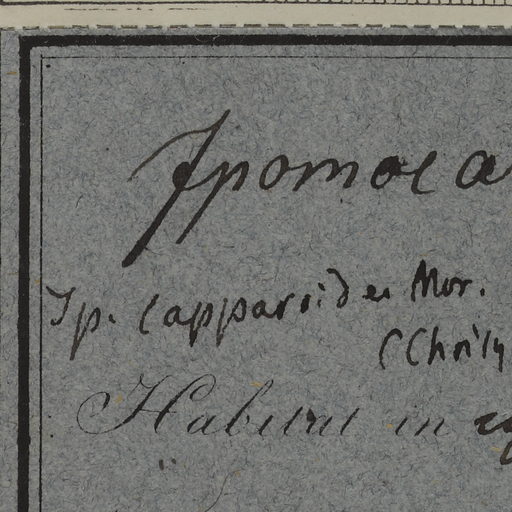 Ipomoea
Ip. capparoides Mor.
(Choisy
Habitat in